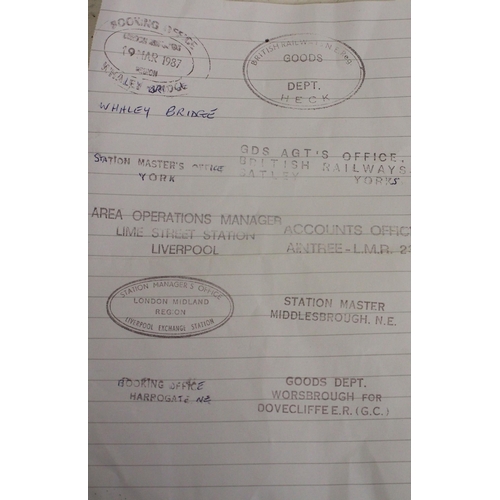 BOOKING OFFICE
LONDON MIDLAND
19 MAR 1987
REGION
WHALEY BRIDGE
WHALEY BRIDGE
BRITISH RAILWAYS N.E. REG
GOODS
DEPT.
HECK
STATION MASTER'S OFFICE
YORK
GDS AGT'S OFFICE.
BRITISH RAILWAYS
BATLEY YORKS
AREA OPERATIONS MANAGER
LIME STREET STATION
LIVERPOOL
ACCOUNTS OFFIC
AINTREE-L.M.R. 2
STATION MANAGER'S OFFICE
LONDON MIDLAND
REGION
LIVERPOOL EXCHANGE STATION
STATION MASTER
MIDDLESBROUGH. N.E.
BOOKING OFFICE
HARROGATE NE
GOODS DEPT.
WORSBROUGH FOR
DOVECLIFFE E.R. (G.C.)